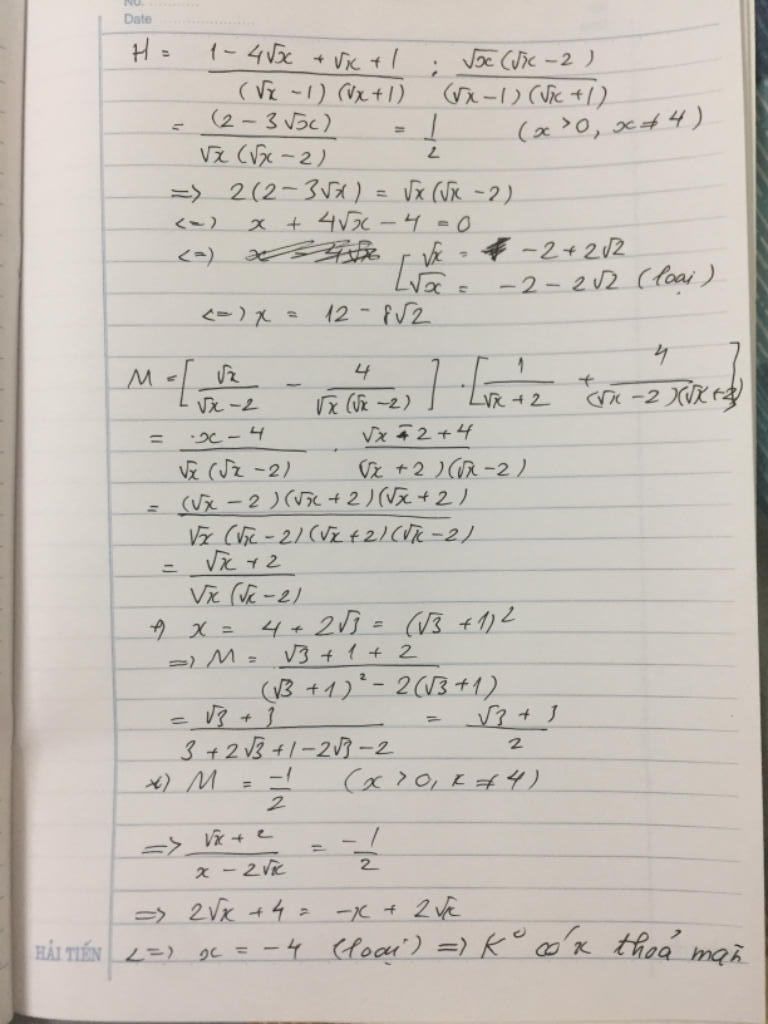 No. ............
Date ........................
H = (1 - 4√x + √x + 1)/((√x - 1)(√x + 1)) : (√x(√x - 2))/((√x - 1)(√x + 1))
= (2 - 3√x)/(√x(√x - 2)) = 1/2 (x > 0, x ≠ 4)
=> 2(2 - 3√x) = √x(√x - 2)
<=> x + 4√x - 4 = 0
<=> [ √x = -2 + 2√2
√x = -2 - 2√2 (loại)
<=> x = 12 - 8√2
M = [√x/(√x - 2) - 4/(√x(√x - 2))] . [1/(√x + 2) + 4/((√x - 2)(√x + 2))]
= (x - 4)/(√x(√x - 2)) . (√x - 2 + 4)/((√x + 2)(√x - 2))
= ((√x - 2)(√x + 2)(√x + 2))/(√x(√x - 2)(√x + 2)(√x - 2))
= (√x + 2)/(√x(√x - 2))
+) x = 4 + 2√3 = (√3 + 1)²
=> M = (√3 + 1 + 2)/((√3 + 1)² - 2(√3 + 1))
= (√3 + 3)/(3 + 2√3 + 1 - 2√3 - 2) = (√3 + 3)/2
*) M = -1/2 (x > 0, x ≠ 4)
=> (√x + 2)/(x - 2√x) = -1/2
=> 2√x + 4 = -x + 2√x
<=> x = -4 (loại) => K° có x thoả mãn
HẢI TIẾN